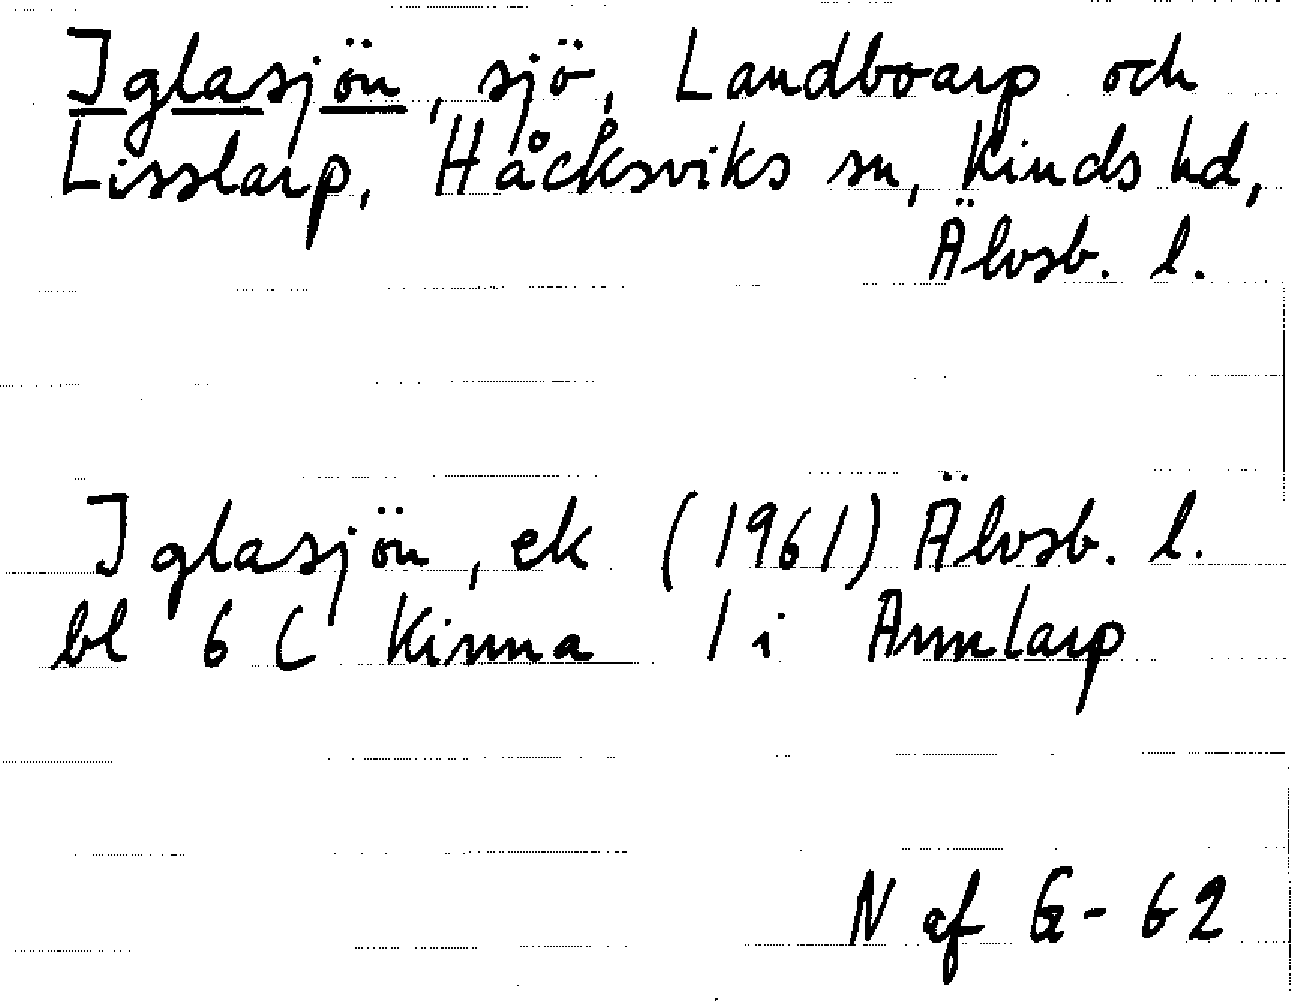 Iglasjön, sjö, Landboarp och
Lisslarp, Håcksviks sn, Kinds hd,
Älvsb. l.
Iglasjön, ek (1961) Älvsb. l.
bl 6 C Kinna 1 i Annlarp
N af G - 62